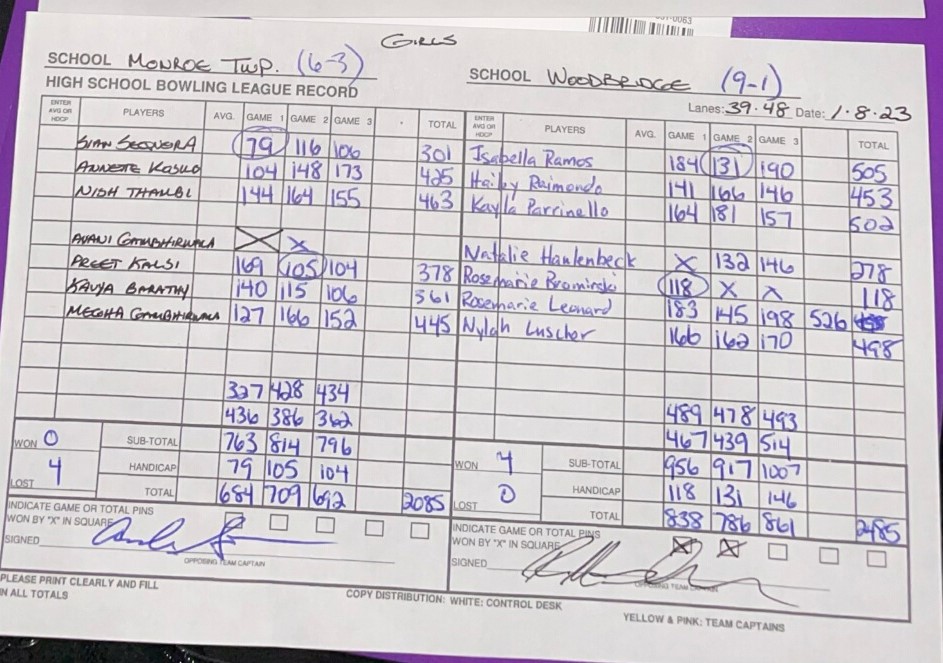 GIRLS
SCHOOL MONROE TWP. (6-3)
SCHOOL WOODBRIDGE (9-1)
HIGH SCHOOL BOWLING LEAGUE RECORD
Lanes: 39-48 Date: 1-8-23
ENTER AVG OR HDCP PLAYERS AVG. GAME 1 GAME 2 GAME 3 TOTAL
79 116 106 301
104 148 173 425
NISH 144 164 155 463
AVANI GAMBHIRWALA X X
PREET KALSI 169 105 104 378
KAVYA BARATHY 140 115 106 361
MEGHA GAMBHIRWALA 127 166 152 445
327 428 434
436 386 362
WON 0 SUB-TOTAL 763 814 796
LOST 4 HANDICAP 79 105 104
TOTAL 684 709 692 2085
INDICATE GAME OR TOTAL PINS
WON BY "X" IN SQUARE
SIGNED
OPPOSING TEAM CAPTAIN
ENTER AVG OR HDCP PLAYERS AVG. GAME 1 GAME 2 GAME 3 TOTAL
Isabella Ramos 184 131 190 505
Hailey Raimondo 141 166 146 453
Kayla Parrinello 164 181 157 502
Natalie Hanlenbeck X 132 146 278
Rosemarie 118 X X 118
Rosemarie Leonard 183 145 198 526
Nylah Luscher 166 162 170 498
489 478 493
467 439 514
WON 4 SUB-TOTAL 956 917 1007
LOST 0 HANDICAP 118 131 146
TOTAL 838 786 861 2485
INDICATE GAME OR TOTAL PINS
WON BY "X" IN SQUARE X X
SIGNED
OPPOSING TEAM CAPTAIN
PLEASE PRINT CLEARLY AND FILL
IN ALL TOTALS
COPY DISTRIBUTION: WHITE: CONTROL DESK
YELLOW & PINK: TEAM CAPTAINS